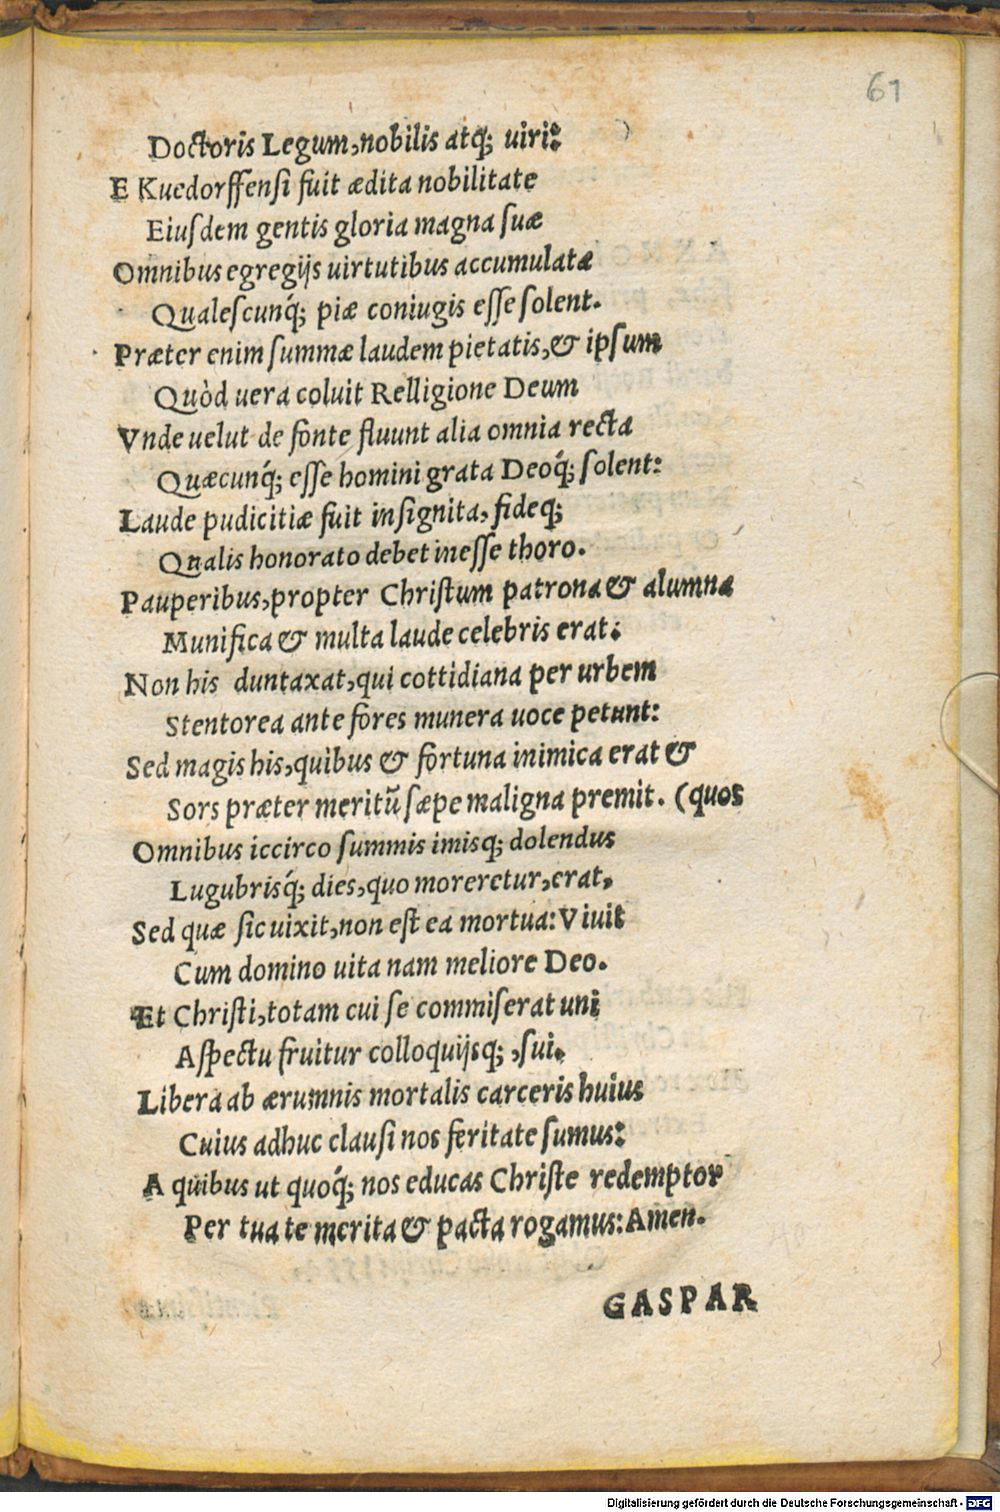 61
Doctoris Legum, nobilis atq; uiri:
E Kuedorffensi fuit ædita nobilitate
Eiusdem gentis gloria magna suæ
Omnibus egregijs uirtutibus accumulatæ
Qualescunq́; piæ coniugis esse solent.
Præter enim summæ laudem pietatis, & ipsum
Quòd uera coluit Relligione Deum
Vnde uelut de fonte fluunt alia omnia recta
Quæcunq́; esse homini grata Deoq́; solent:
Laude pudicitiæ fuit insignita, fideq;
Qualis honorato debet inesse thoro.
Pauperibus, propter Christum patrona & alumna
Munifica & multa laude celebris erat:
Non his duntaxat, qui cottidiana per urbem
Stentorea ante fores munera uoce petunt:
Sed magis his, quibus & fortuna inimica erat &
Sors præter meritũ sæpe maligna premit. (quos
Omnibus iccirco summis imisq; dolendus
Lugubrisq́; dies, quo moreretur, erat,
Sed quæ sic uixit, non est ea mortua: Viuit
Cum domino uita nam meliore Deo.
Et Christi, totam cui se commiserat uni
Aspectu fruitur colloquijsq; , sui.
Libera ab ærumnis mortalis carceris huius
Cuius adhuc clausi nos feritate sumus:
A quibus ut quoq́; nos educas Christe redemptor
Per tua te merita & pacta rogamus: Amen.
GASPAR
Digitalisierung gefördert durch die Deutsche Forschungsgemeinschaft - DFG